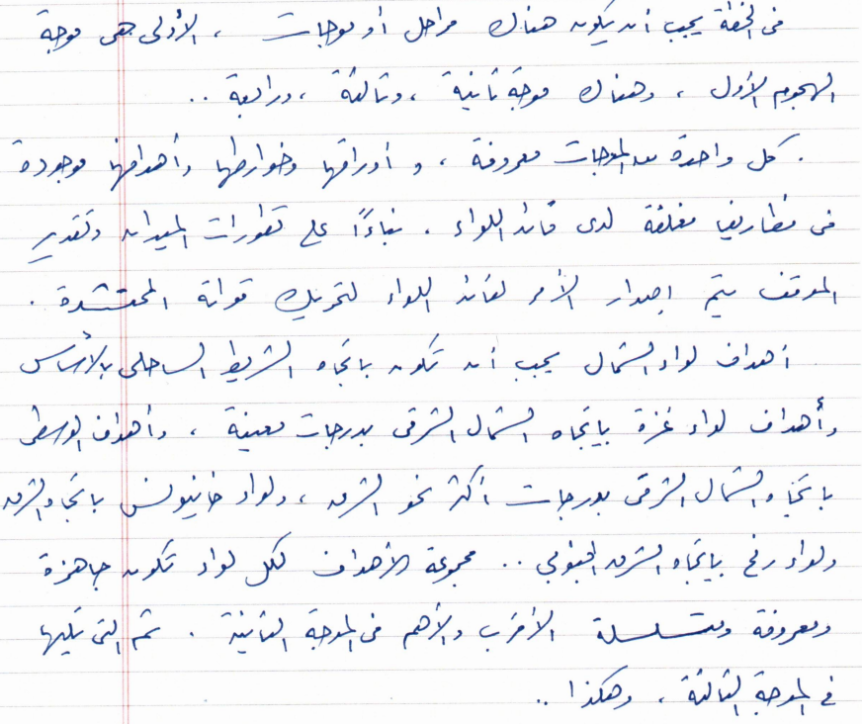 في الخطة يجب أن يكون هناك مراحل أو موجات ، الأولى هي موجة
الهجوم الأول ، وهناك موجة ثانية ، وثالثة ، ورابعة ..
. كل واحدة من الموجات معروفة ، و أوراقها وخوارطها وأهدافها موجودة
في مظاريف مغلقة لدى قائد اللواء . بناءًا على تطورات الميدان وتقدير
الموقف يتم إصدار الأمر لقائد اللواء لتحريك قواته المحتشدة .
أهداف لواء الشمال يجب أن تكون باتجاه الشريط الساحلي بالأساس
وأهداف لواء غزة بإتجاه الشمال الشرقي بدرجات معينة ، وأهداف الوسطى
باتجاه الشمال الشرقي بدرجات أكثر نحو الشرق ، ولواء خانيونس باتجاه الشرق
ولواء رفح بإتجاه الشرق الجنوبي .. مجموعة الأهداف لكل لواء تكون جاهزة
ومعروفة ومتسلسلة الأقرب والأهم في الموجة الثانية . ثم التي تليها
في الموجة الثالثة ، وهكذا ..